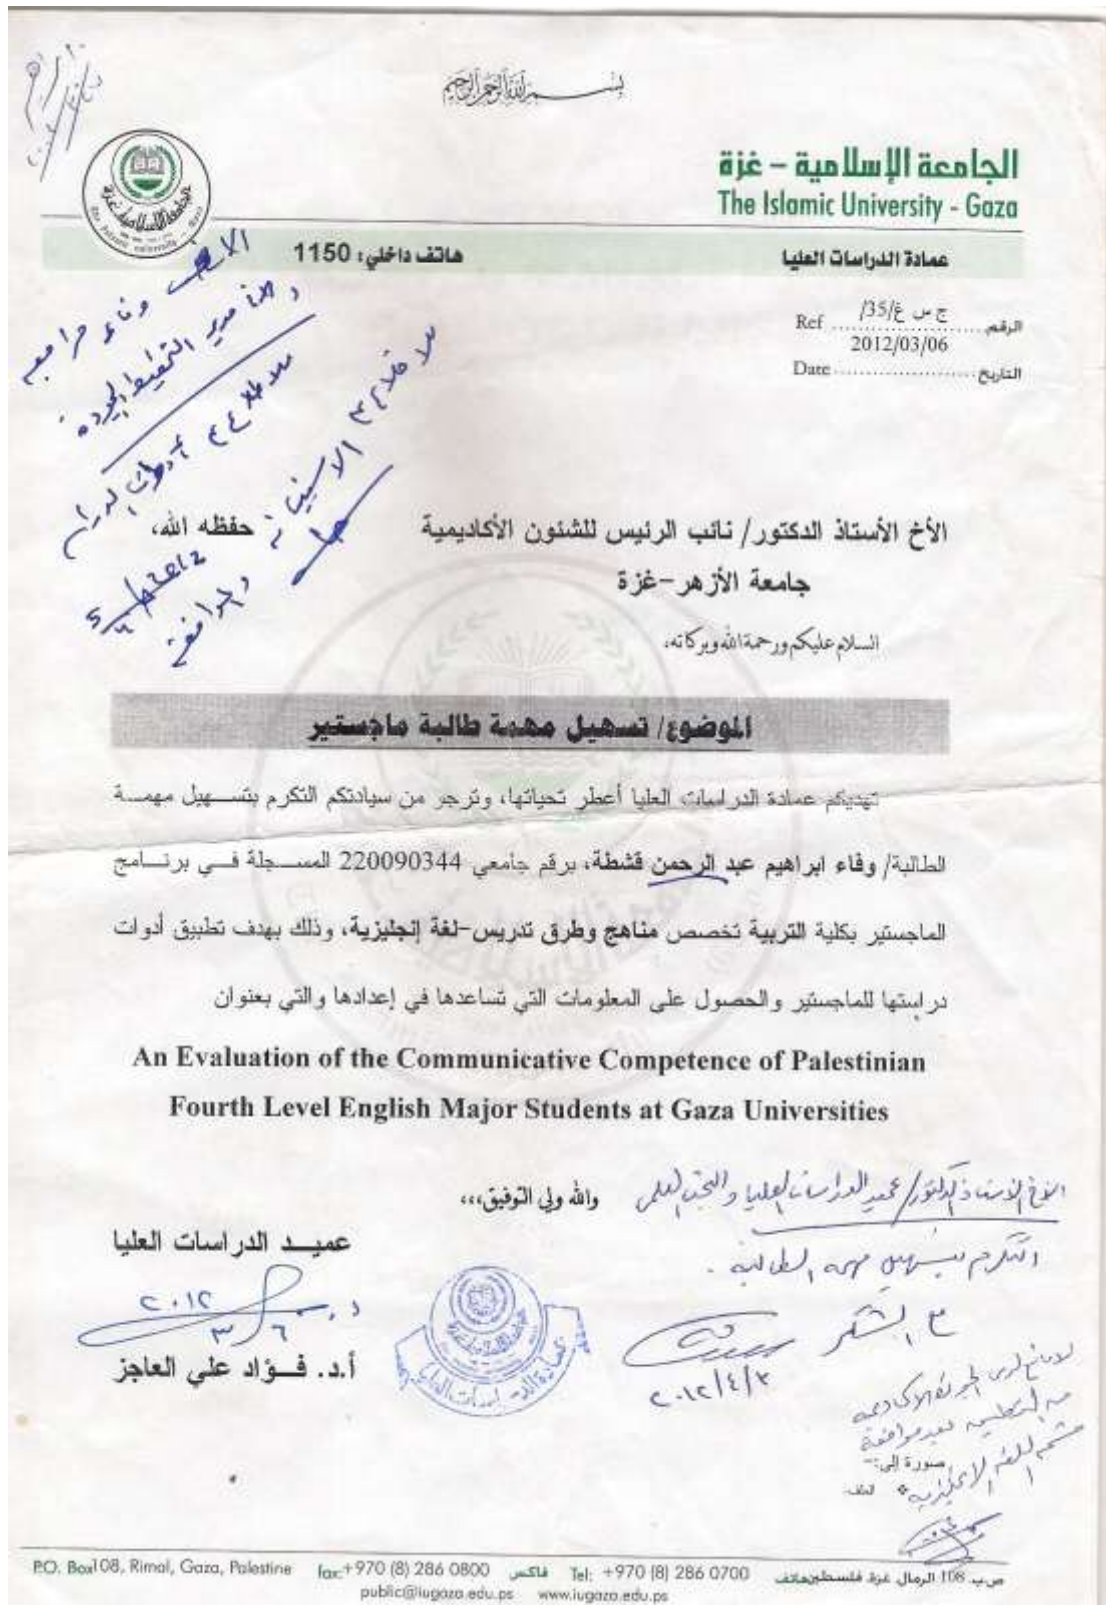 بسم الله الرحمن الرحيم
الجامعة الإسلامية – غزة
The Islamic University - Gaza
عمادة الدراسات العليا
هاتف داخلي: 1150
الرقم ج س غ/35/ Ref
2012/03/06
التاريخ Date
الأخ الأستاذ الدكتور/ نائب الرئيس للشئون الأكاديمية حفظه الله،
جامعة الأزهر-غزة
السلام عليكم ورحمة الله وبركاته،
الموضوع/ تسهيل مهمة طالبة ماجستير
تهديكم عمادة الدراسات العليا أعطر تحياتها، وترجو من سيادتكم التكرم بتسهيل مهمة
الطالبة/ وفاء ابراهيم عبد الرحمن قشطة، برقم جامعي 220090344 المسجلة في برنامج
الماجستير بكلية التربية تخصص مناهج وطرق تدريس-لغة إنجليزية، وذلك بهدف تطبيق أدوات
دراستها للماجستير والحصول على المعلومات التي تساعدها في إعدادها والتي بعنوان
An Evaluation of the Communicative Competence of Palestinian
Fourth Level English Major Students at Gaza Universities
والله ولي التوفيق،،،
الأخ الأستاذ الدكتور/ عميد الدراسات العليا والبحث العلمي
التكرم بتسهيل مهمة الطالبة.
مع الشكر
٢٠١٢/٤/٣
عميد الدراسات العليا
٢٠١٢
٣/٦
أ.د. فؤاد علي العاجز
صورة إلى:-
الملف.
P.O. Box108, Rimal, Gaza, Palestine fax:+970 (8) 286 0800 فاكس Tel: +970 (8) 286 0700 ص.ب. 108 الرمال. غزة. فلسطين هاتف
public@iugaza.edu.ps www.iugaza.edu.ps